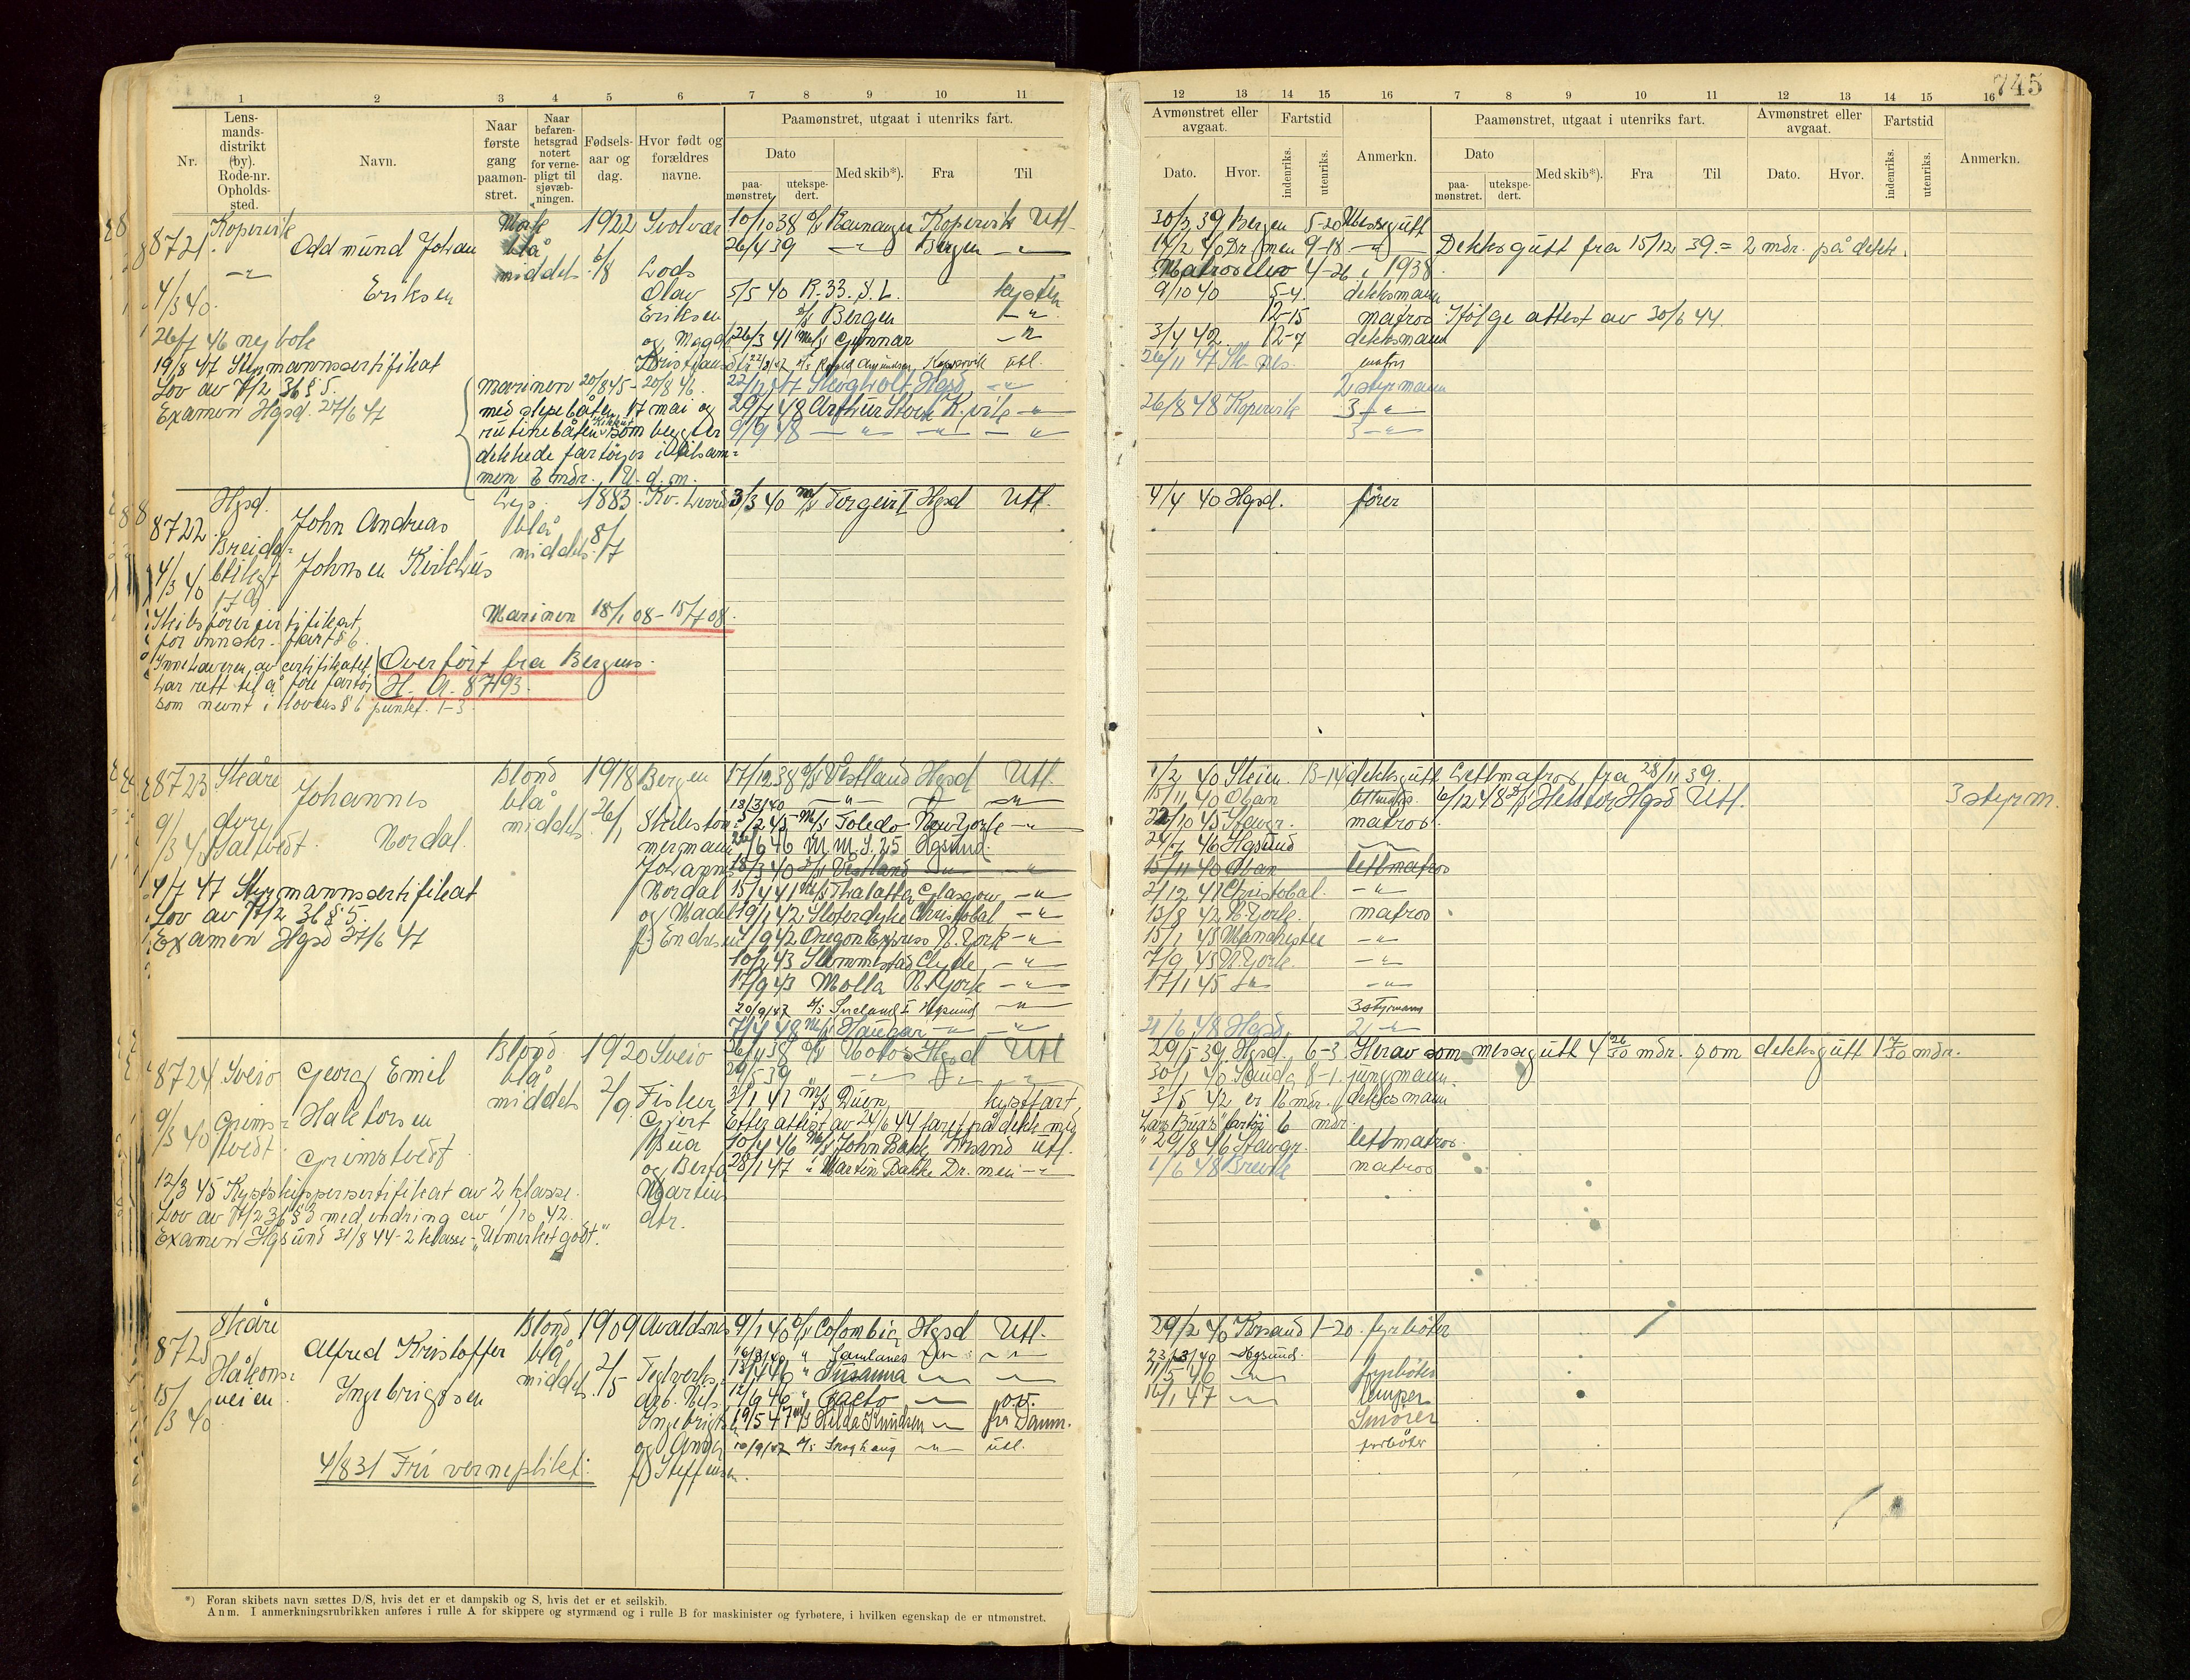 745
1 2 3 4 5 6 7 8 9 10 11
Nr.
Lens-
mands-
distrikt
(by).
Rode-nr.
Opholds-
sted.
Navn.
Naar
første
gang
paamøn-
stret.
Naar
befaren-
hetsgrad
notert
for verne-
pligt til
sjøvæb-
ningen.
Fødsels-
aar og
dag.
Hvor født og
forældres
navne.
Paamønstret, utgaat i utenriks fart.
Dato
paa-
mønstret.
utekspe-
dert.
Med skib*).
Fra
Til
12 13 14 15 16 7 8 9 10 11 12 13 14 15 16
Avmønstret eller
avgaat.
Fartstid
Dato.
Hvor.
indenriks.
utenriks.
Anmerkn.
Paamønstret, utgaat i utenriks fart.
Dato
paa-
mønstret.
utekspe-
dert.
Med skib*).
Fra
Til
Avmønstret eller
avgaat.
Fartstid
Dato.
Hvor.
indenriks.
utenriks.
Anmerkn.
8721. Kopervik
Odd mund Johan
Eriksen
Mørk
blå
middels
1922
6/8
Svolvær
Lods
Olav
Eriksen
og Magda
4/3 40.
26/7 46 ny bok
19/8 47 Styrmannssertifikat
Lov av 7/2 36 § 5.
Examen Hgsd. 27/6 47
Marinen 20/8 45 - 20/8 46.
med slepebåten 17 mai og
rutinebåten som begge er
dekkede fartöyer i tilsam=
men 6 mdr. U. d. m.
10/10 38 Kopervik Utl.
26/4 39 -"- Bergen -"-
5/5 40 R. 33. S. L. kysten
Bergen -"-
26/3 41 M/S Gunnar -"-
Roald Amundsen Kopervik utl.
Skogholt Hgsd -"-
29/7 48 Arthur Stove K.vik -"-
9/9 48 -"- -"- -"-
30/3 39 Bergen 5-20
14/2 40 Dr.men 9-18 -"- Dekksgutt fra 15/12 39 = 2 mdr. på dekk.
Matroselev 4-26 i 1938.
9/10 40 5-4. dekksmann
12-15 matros Ifölge attest av 30/6 44.
3/4 42. 12-7 dekksmann
26/11 47
2 styrmann
26/8 48 Kopervik 3 -"-
3 -"-
8722. Hgsd.
Breida=
blikgt
179
4/3 40
John Andreas
Johnsen Kirkhus
blå
middels
1883
8/7
3/3 40 M/S Torgeir I Hgsd Utl.
4/4 40 Hgsd. förer
Marinen 18/1 08 - 15/7 08.
Skibsförersertifikat
for innskr. fart § 6.
Innehaveren av certifikatet
har rett til å före fartöy
som nevnt i lovens § 6 punkt. 1-3.
Overfört fra Bergens.
H. A. 8793.
8723. Skåre
9/3 40
Johannes
Nordal.
Blond
blå
middels
1918
26/1
Bergen
Skibstöm=
mermann
Johannes
Nordal
og
f. Endresen
4/7 47 Styrmannssertifikat
Lov av 7/2 36 § 5.
Examen Hgsd 27/6 47
17/12 38 D/S Vestland Hgsd Utl.
18/3/40 -"- -"- -"-
M/S Toledo New York -"-
M.M.S. 25 Hgsund.
18/3 40 D/S Vestland -"- -"-
15/4 41 M/S Thalatta Glasgow -"-
19/1 42 Sloterdyke Christobal -"-
4/9 42 Oregon Express N. York -"-
10/2 43 Slemmestad Clyde -"-
17/9 43 Molla N. York -"-
20/9/47 D/S Hgsund -"-
7/4 48 M/S Haugar -"- -"-
1/2 40 Skien 13-14 dekksgutt Lettmatros fra 28/11 39.
15/11 40 Oban lettmatros. 6/12 48 D/S Hektor Hgsd Utl. 3 styrm.
22/10 45 Stavgr. matros.
24/7 46 Hgsund
15/11 40 Oban lettmatros
2/12 41 Christobal. -"-
13/8 42 N. York. matros
15/1 43 Manchester -"-
7/9 43 N. York. -"-
17/1 45 -"- -"-
3 styrmann
21/6 48 Hgsd. 2 -"-
8724 Sveio
Grims=
tvedt.
9/3 40
Georg Emil
Halvorsen
Grimstvedt
Blond
blå
middels
1920
2/9.
Sveio
Fisker
Gjert
Bua
og Berta
Martins
dtr.
12/3 45 Kystskippersertifikat av 2 klasse.
Lov av 7/2 36 § 3 med endring av 1/10 42.
Examen Hgsund 31/8 44 - 2 klasse - "Utmerket godt."
26/4 38 D/S Hgsd Utl
29/5 39 -"- -"- -"-
2/1 41 M/S Duen kystfart
Efter attest av 24/6 44 fart på dekk med
10/4 46 M/S John Bakke Krsand utl.
28/1 47 " Martin Bakke Dr.men -"-
29/5 39 Hgsd. 6-3 Herav som messegutt 4 26/30 mdr. som dekksgutt 1 7/30 mdr.
30/1 40 Sauda 8-1. jungmann.
3/5 42 er 16 mdr. dekksmann
Lars Bua's fartöy 6 mdr.
29/8 46 Stavgr. lettmatros.
1/6 48 Brevik matros
8725 Skåre
Håkons=
veien
15/3 40.
Alfred Kristoffer
Ingebrigtsen
Blond
blå
middels
1909
2/5
Avaldsnes
Teglverks-
arb. Nils
Ingebrigts
og Anna
f. Steffensen.
4/8 31 Fri verneplikt.
9/1 40 D/S Colombia Hgsd Utl.
16/3/40 " -"- -"-
13/4 46 " Susanna -"- -"-
12/9 46 " -"- ov.
19/5 47 M/S Hilda Knudsen -"- fra Danm.
10/9/47 D/S Skoghaug -"- utl.
29/2 40 Krsand 1-20. fyrböter
23/3/40 Hgsund.
21/5 46 -"- fyrböter
16/1 47 -"- lemper
Smörer
fyrböter
*) Foran skibets navn sættes D/S, hvis det er et dampskib og S, hvis det er et seilskib.
Anm. I anmerkningsrubrikken anføres i rulle A for skippere og styrmænd og i rulle B for maskinister og fyrbøtere, i hvilken egenskap de er utmønstret.